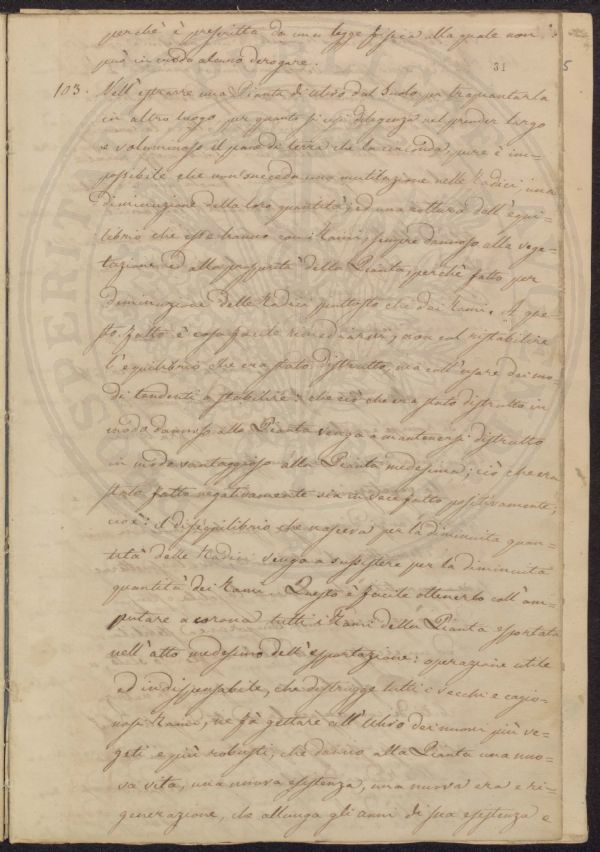 perchè è prescritta da una legge fisica alla quale non
può in modo alcuno derogare.
31
5
103. Nell'estrarre una Pianta di Ulivo dal Suolo per trapiantarla
in altro luogo, per quanto si usi diligenza nel prender largo
e voluminoso il pane di terra che la circonda, pure è im-
possibile che non succeda una mutilazione nelle Radici, una
diminuzione della loro quantità; ed una rottura dell'equi-
librio che esse hanno con i Rami, sempre dannoso alla vege-
tazione ed alla prosperità della Pianta, perchè fatto per
diminuzione delle Radici piuttosto che dei Rami. A que-
sto fatto è cosa facile rimediarvi; non col ristabilire
l'equilibrio che era stato distrutto, ma coll'usare dei mo-
di tendenti a stabilire: che ciò che era stato distrutto in
modo dannoso alla Pianta venga a mantenersi distrutto
in modo vantaggioso alla Pianta medesima; ciò che era
stato fatto negativamente sia in vece fatto positivamente;
cioè: il disequilibrio che nasceva per la diminuita quan-
tità delle Radici venga a sussistere per la diminuita
quantità dei Rami. Questo è facile ottenerlo coll'am-
putare a corona tutti i Rami della Pianta esportata
nell'atto medesimo dell'esportazione: operazione utile
ed indispensabile, che distrugge tutti i vecchi e cagio-
nosi Rami, ne fà gettare all'Ulivo dei nuovi più ve-
geti e più robusti, che danno alla Pianta una nuo-
va vita, una nuova esistenza, una nuova era e ri-
generazione, che allunga gli anni di sua esistenza e